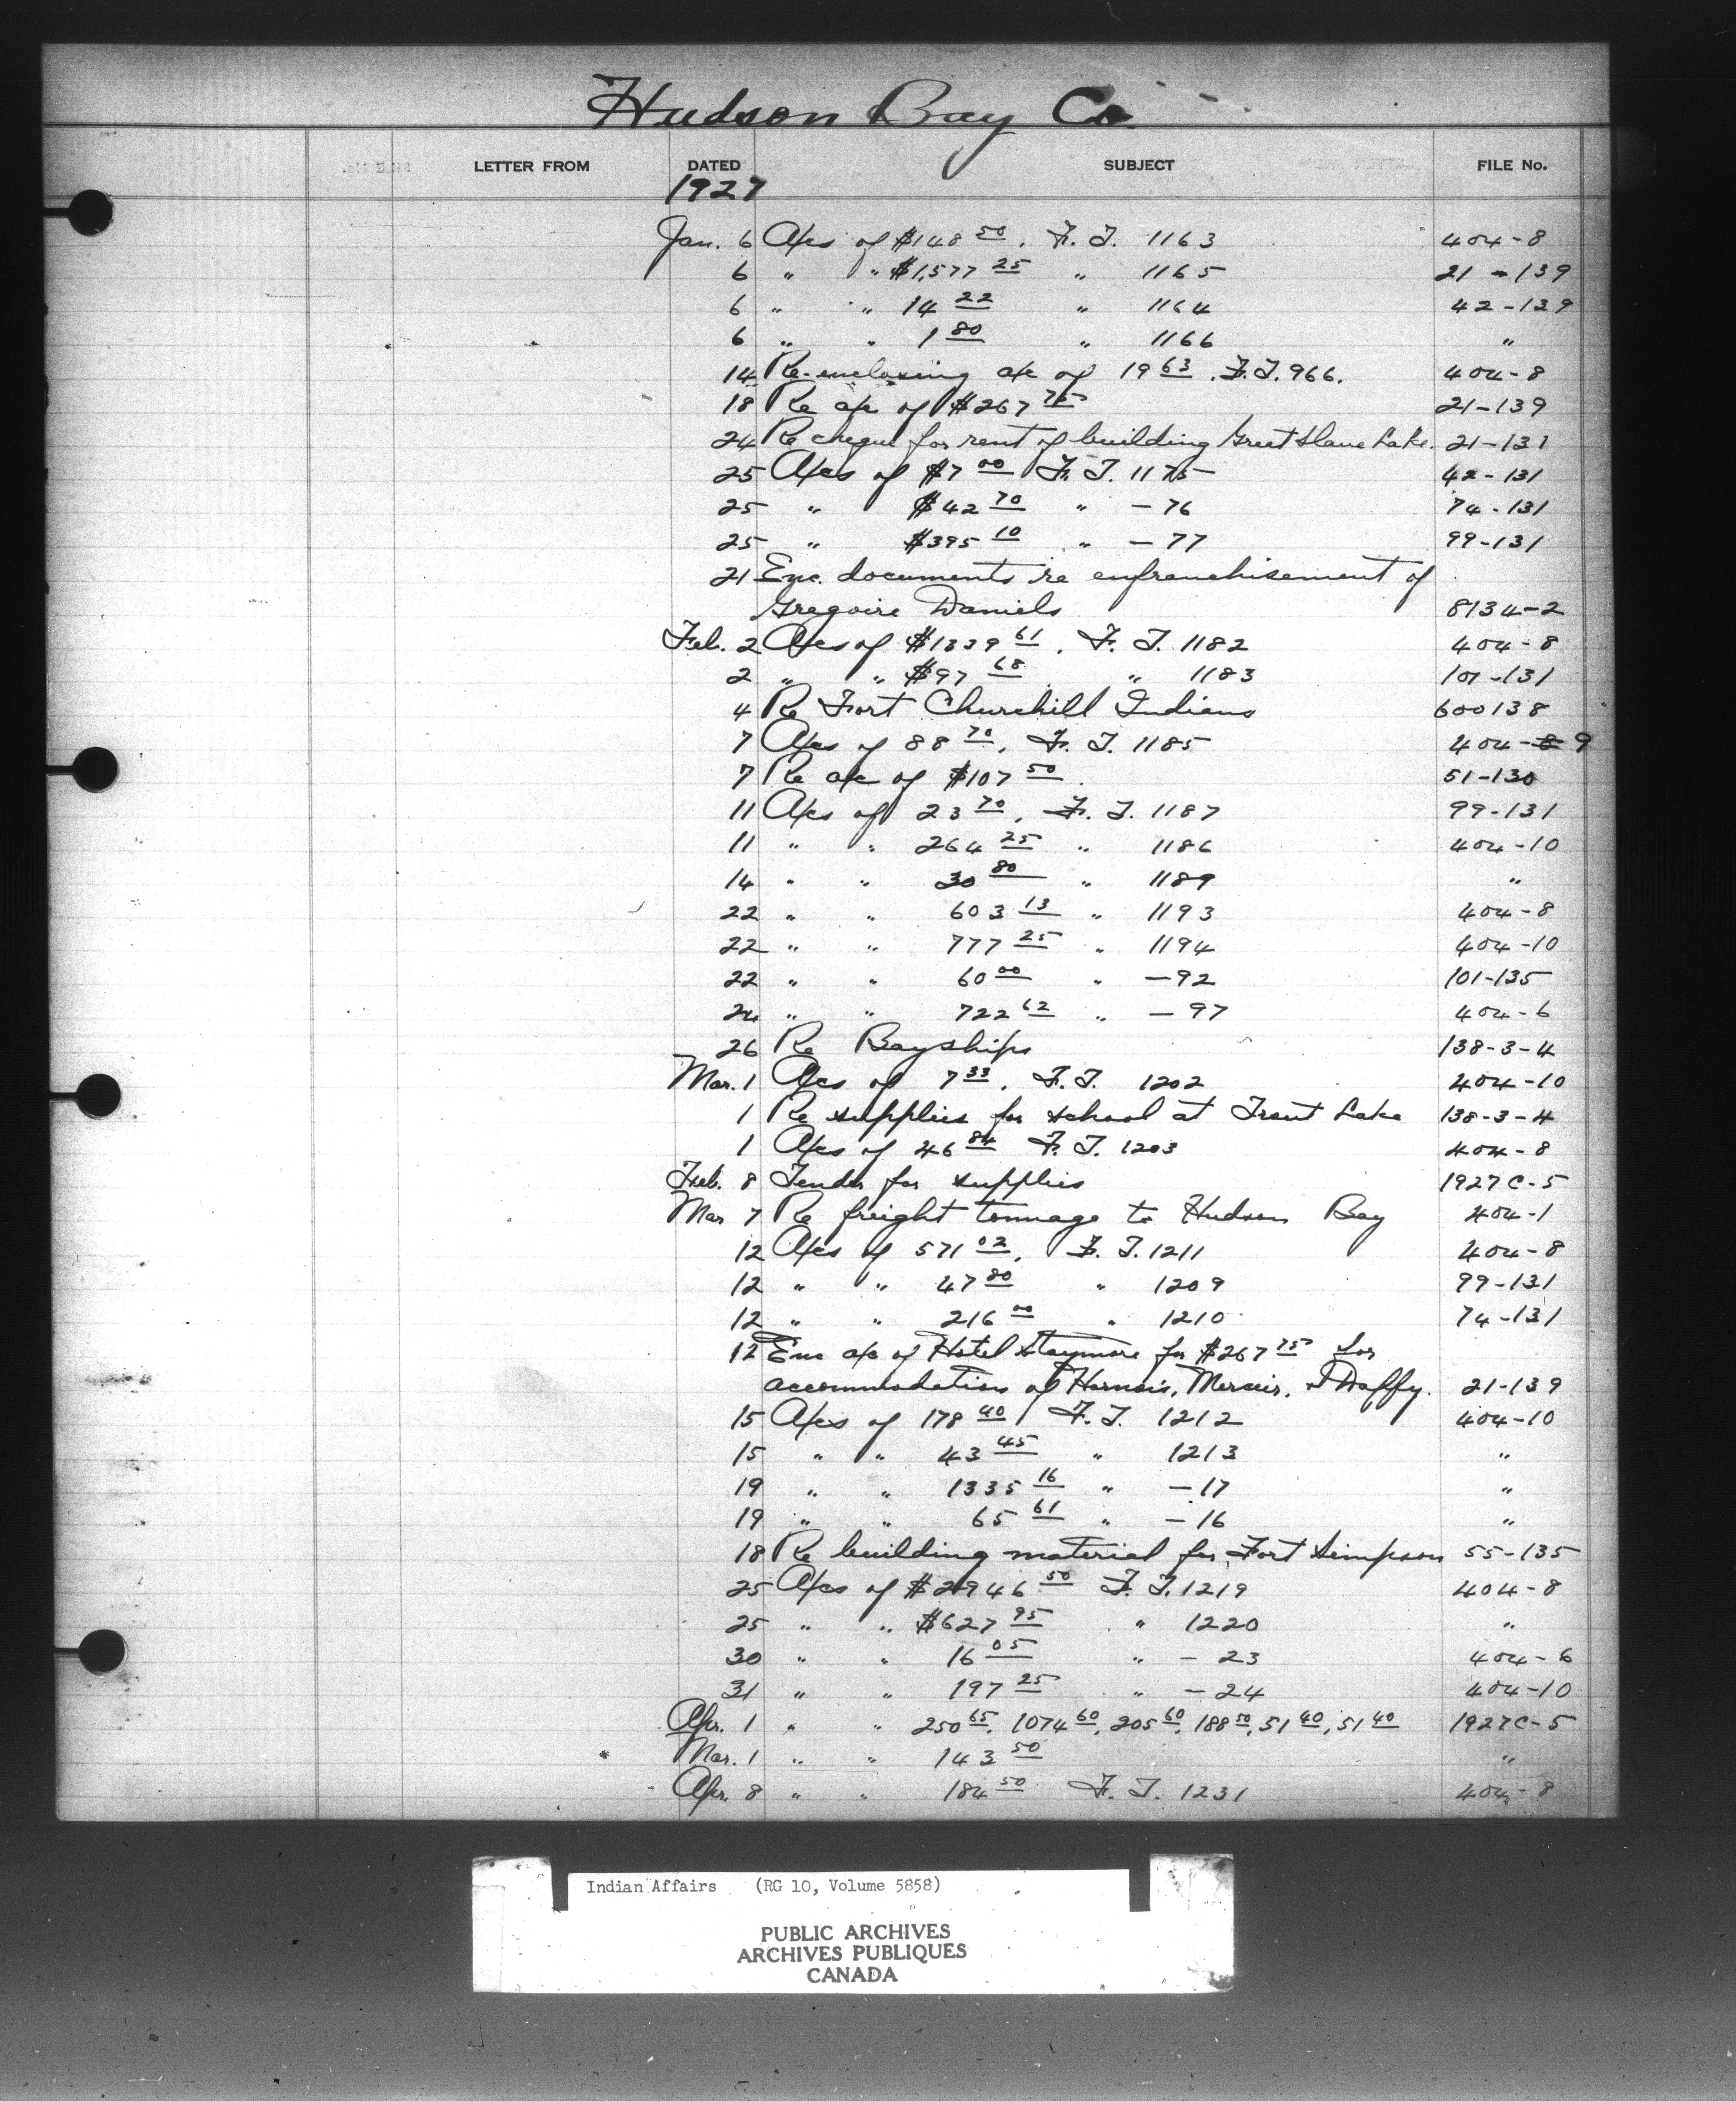 Hudson Bay Co.
LETTER FROM DATED SUBJECT FILE No.
1927
Jan. 6 A/cs of $148 50. F. T. 1163 404-8
6 " " $1,577 25 " 1165 21-139
6 " " 14 22 " 1164 42-139
6 " " 1 80 " 1166 "
14 Re-enclosing a/c of 19 63. F.T. 966. 404-8
18 Re a/c of $267 75 21-139
24 Re cheque for rent of building Great Slave Lake. 21-131
25 A/cs of $7 00 F. T. 1175 42-131
25 " $42 70 " -76 74-131
25 " $395 10 " -77 99-131
21 Enc. documents re enfranchisement of
Gregoire Daniels 8134-2
Feb. 2 A/cs of $1339 61. F. T. 1182 404-8
2 " " $97 68 " 1183 101-131
4 Re Fort Churchill Indians 600138
7 A/cs of 88 70. F. T. 1185 404-8 9
7 Re a/c of $107 50. 51-130
11 A/cs of 23 70. F. T. 1187 99-131
11 " " 264 25 " 1186 404-10
14 " " 30 80 " 1189 "
22 " " 603 13 " 1193 404-8
22 " " 777 25 " 1194 404-10
22 " " 60 00 " -92 101-135
24 " " 722 62 " -97 404-6
26 Re Bayships 138-3-4
Mar. 1 A/cs of 7 33. F.T. 1202 404-10
1 Re supplies for school at Trout Lake 138-3-4
1 A/cs of 46 84 F. T. 1203 404-8
Feb. 8 Tender for supplies 1927 C-5
Mar 7 Re freight tonnage to Hudson Bay 404-1
12 A/cs of 571 02. F. T. 1211 404-8
12 " " 47 80 " 1209 99-131
12 " " 216 00 " 1210 74-131
12 Enc a/c of Hotel for $267 75 for
accommodation of Harnois, Mercier, & Daffy. 21-139
15 A/cs of 178 40 F. T. 1212 404-10
15 " " 43 45 " 1213 "
19 " " 1335 16 " -17 "
19 " " 65 61 " -16 "
18 Re building material for Fort Simpson 55-135
25 A/cs of $2946 50 F. T. 1219 404-8
25 " " $627 95 " 1220 "
30 " " 16 05 " -23 404-6
31 " " 197 25 " -24 404-10
Apr. 1 " " 250 65, 1074 60, 205 60, 188 50, 51 40, 51 40 1927C-5
Mar. 1 " " 143 50 "
Apr. 8 " " 184 50 F. T. 1231 404-8
Indian Affairs (RG 10, Volume 5858)
PUBLIC ARCHIVES
ARCHIVES PUBLIQUES
CANADA